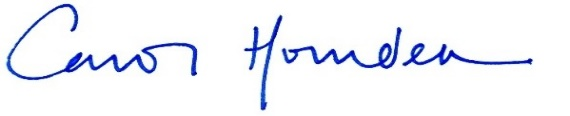 Carol Homden